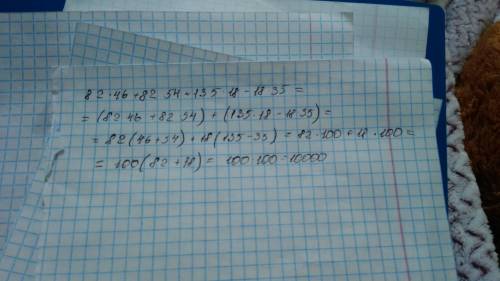 82·46+82·54+135·18-18·35=
=(82·46+82·54)+(135·18-18·35)=
=82(46+54)+18(135-35)=82·100+18·100=
=100(82+18)=100·100=10000